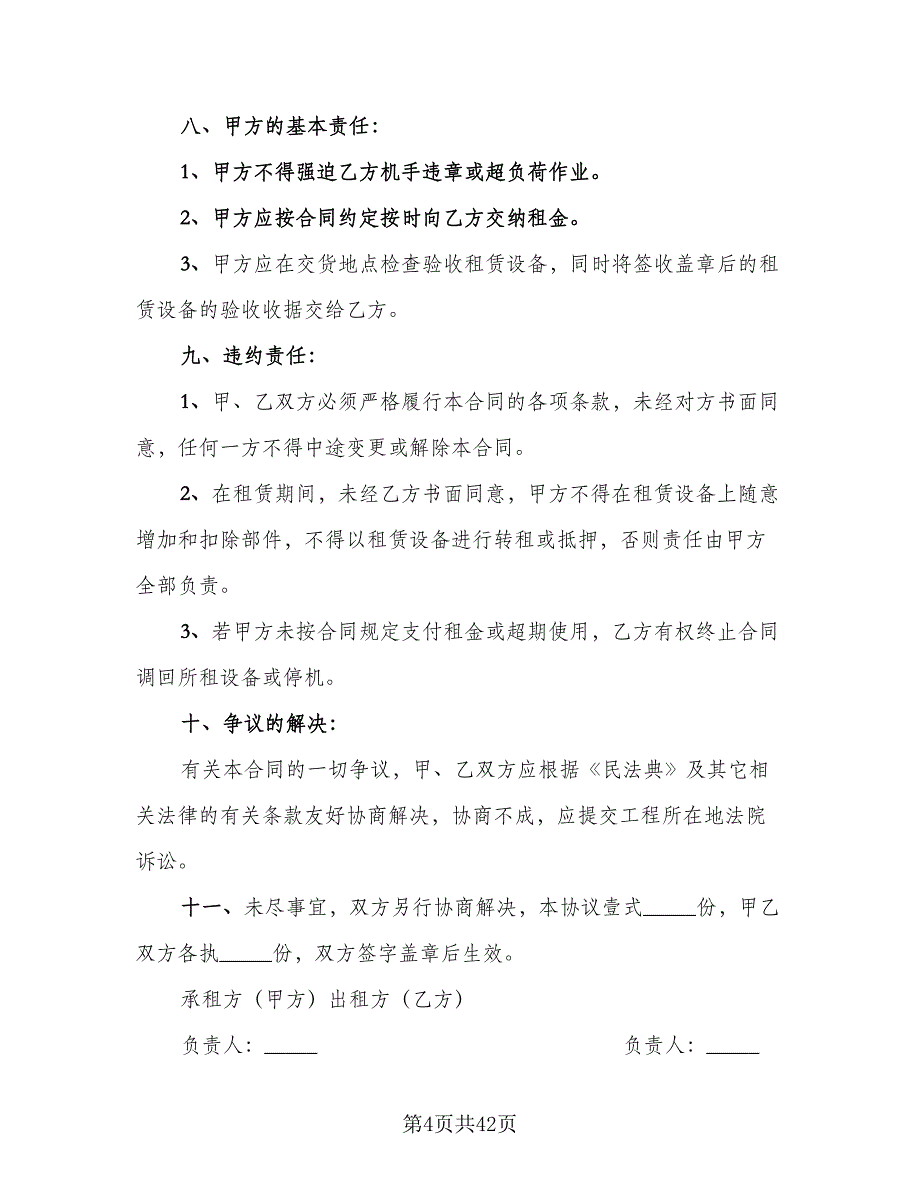 八、甲方的基本责任：
1、甲方不得强迫乙方机手违章或超负荷作业。
2、甲方应按合同约定按时向乙方交纳租金。
3、甲方应在交货地点检查验收租赁设备，同时将签收盖章后的租
赁设备的验收收据交给乙方。
九、违约责任：
1、甲、乙双方必须严格履行本合同的各项条款，未经对方书面同
意，任何一方不得中途变更或解除本合同。
2、在租赁期间，未经乙方书面同意，甲方不得在租赁设备上随意
增加和扣除部件，不得以租赁设备进行转租或抵押，否则责任由甲方
全部负责。
3、若甲方未按合同规定支付租金或超期使用，乙方有权终止合同
调回所租设备或停机。
十、争议的解决：
有关本合同的一切争议，甲、乙双方应根据《民法典》及其它相
关法律的有关条款友好协商解决，协商不成，应提交工程所在地法院
诉讼。
十一、未尽事宜，双方另行协商解决，本协议壹式_____份，甲乙
双方各执_____份，双方签字盖章后生效。
承租方（甲方）出租方（乙方）
负责人：_____ 负责人：_____
第4页共42页